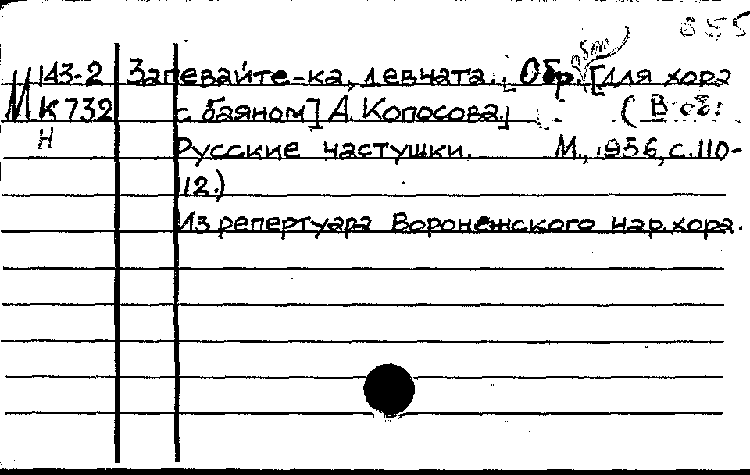 655
М 143-2 Запевайте-ка, девчата. Обр. [для хора
К 732 с баяном] А. Копосова. (В сб:
Н Русские частушки. М., 1956, с. 110-
112.)
Из репертуара Воронежского нар. хора.